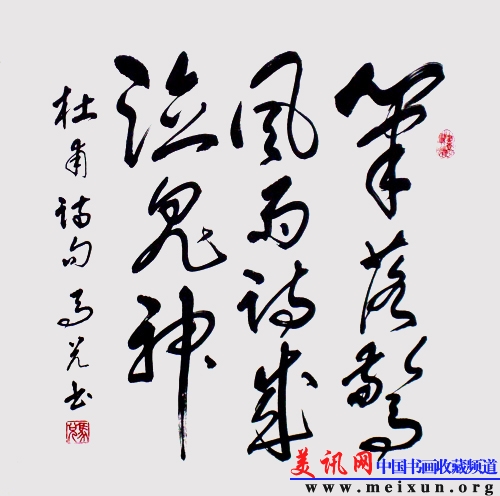 筆落驚
風雨诗成
泣鬼神
杜甫诗句 马羌书
美讯网
中国书画收藏频道
www.meixun.org